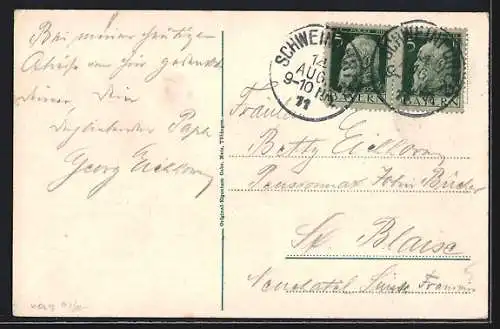 Bei meiner heutigen
Abreise von hier gedenkt
Deiner, Dein
Papa
Georg Eichhorn
Original-Eigentum Gebr. Metz, Tübingen
SCHWEINF
12
AUG.
9-10
11
5
BAYERN
5
BAYERN
Fräulein
Betty Eichhorn
Pensionnat John Bücher
St. Blaise
Neuchatel Suisse